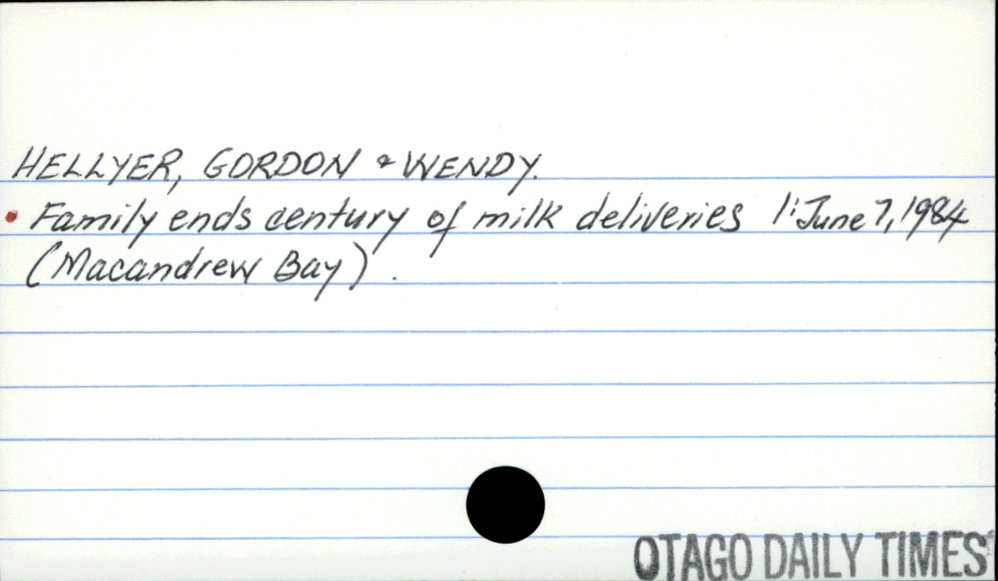 HELLYER, GORDON & WENDY.
• Family ends century of milk deliveries 1: June 7, 1984
(Macandrew Bay).
OTAGO DAILY TIMES